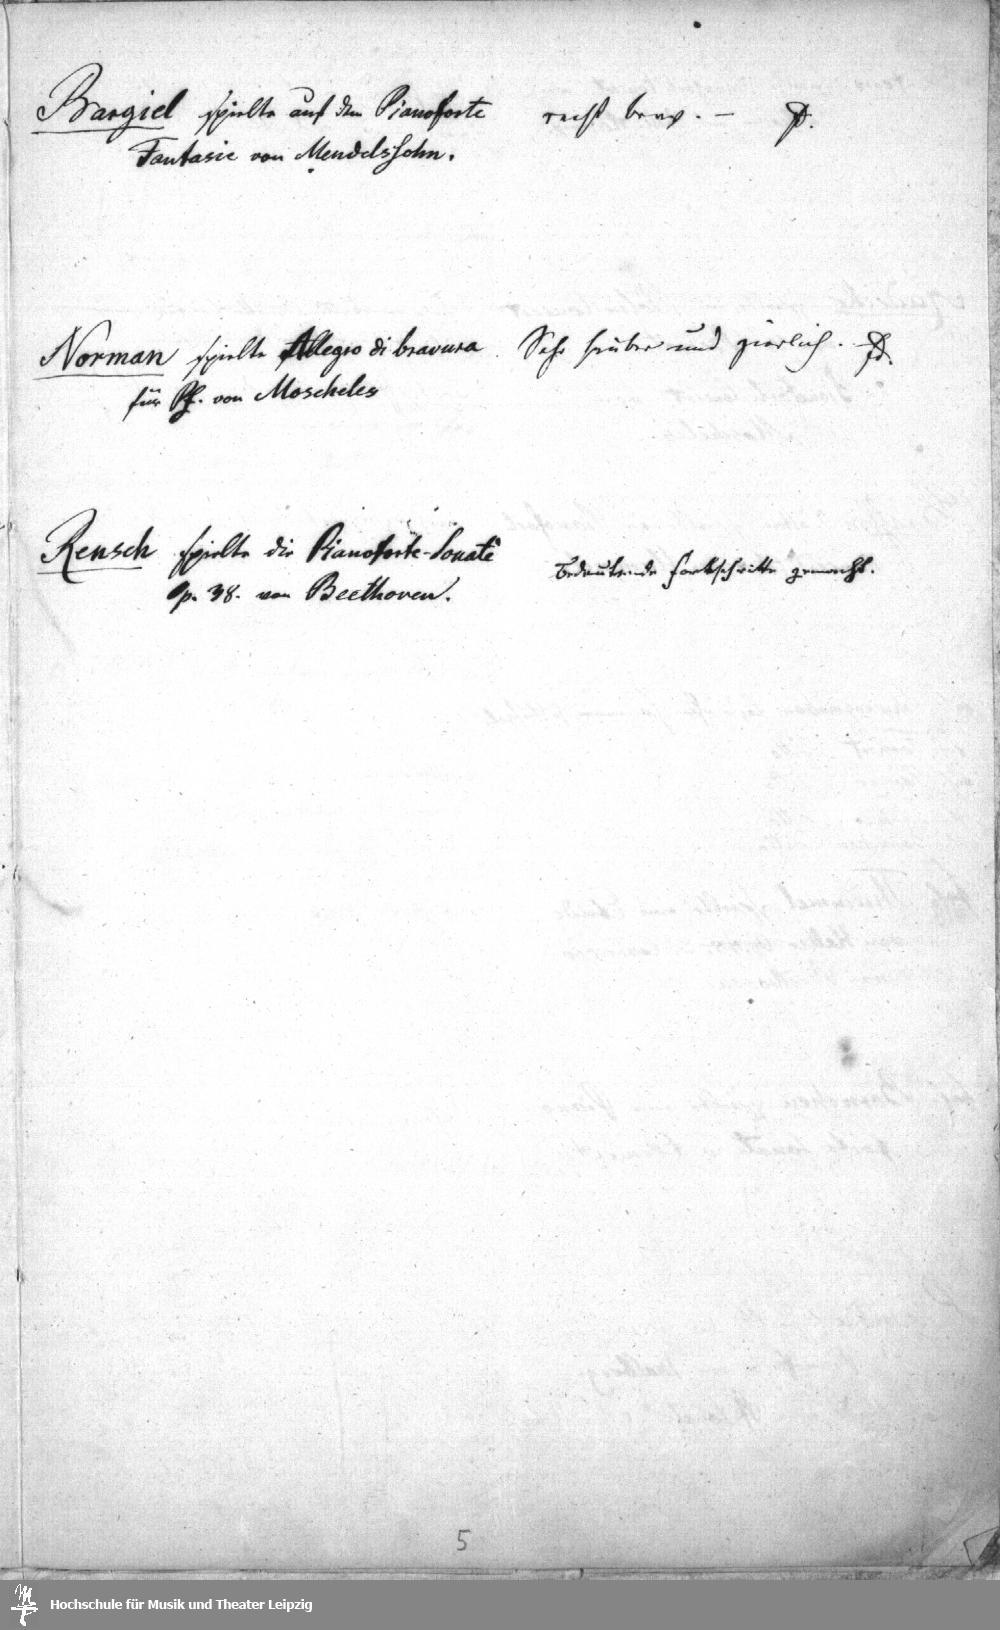 Bargiel spielte auf dem Pianoforte recht brav. –
Fantasie von Mendelssohn.
Norman spielte Allegro di bravura Sehr sauber und zierlich. –
für Pf. von Moscheles
Rensch spielte die Pianoforte-Sonate
Bedeutende Fortschritte gemacht.
Op. 38. von Beethoven.
5
Hochschule für Musik und Theater Leipzig